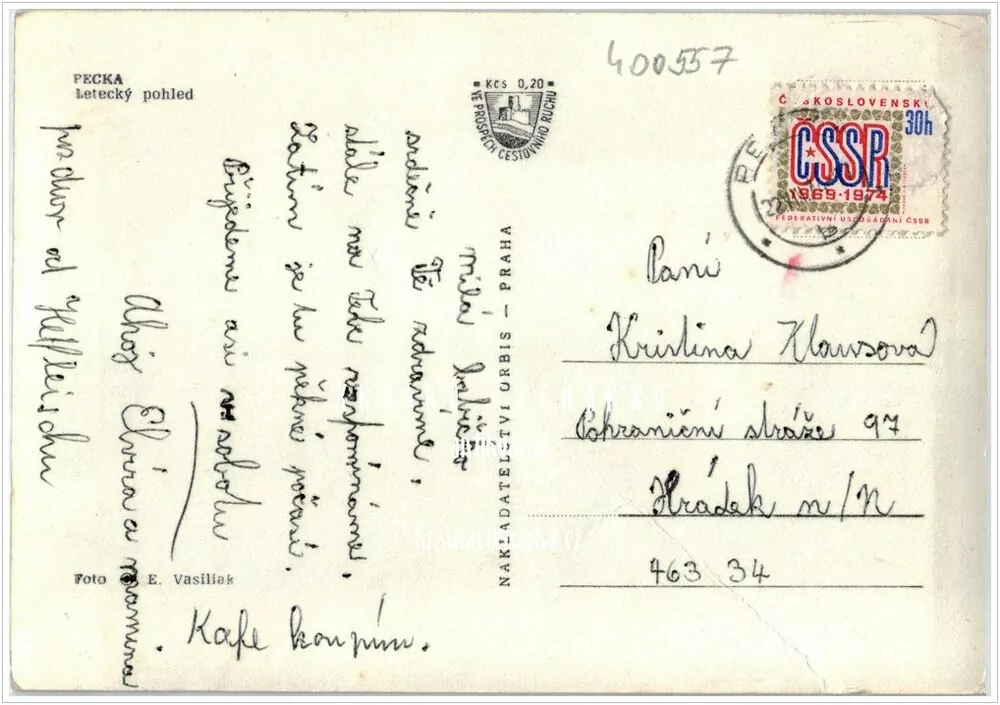 400557
PECKA
Letecký pohled
Kčs 0,20
VE PROSPĚCH CESTOVNÍHO RUCHU
ČESKOSLOVENSKO
30h
ČSSR
1969-1974
FEDERATIVNÍ USPOŘÁDÁNÍ ČSSR
milá babičko
srdečně Tě zdravíme,
stále na Tebe vzpomínáme.
Zatím je tu pěkné počasí.
Přijedeme asi v sobotu
Ahoj Elvíra a mamina
pozdrav od
Kafe koupím.
Foto E. Vasiliak
NAKLADATELSTVÍ ORBIS — PRAHA
Paní
Kristina Klausová
Pohraniční stráže 97
Hrádek n/N
463 34